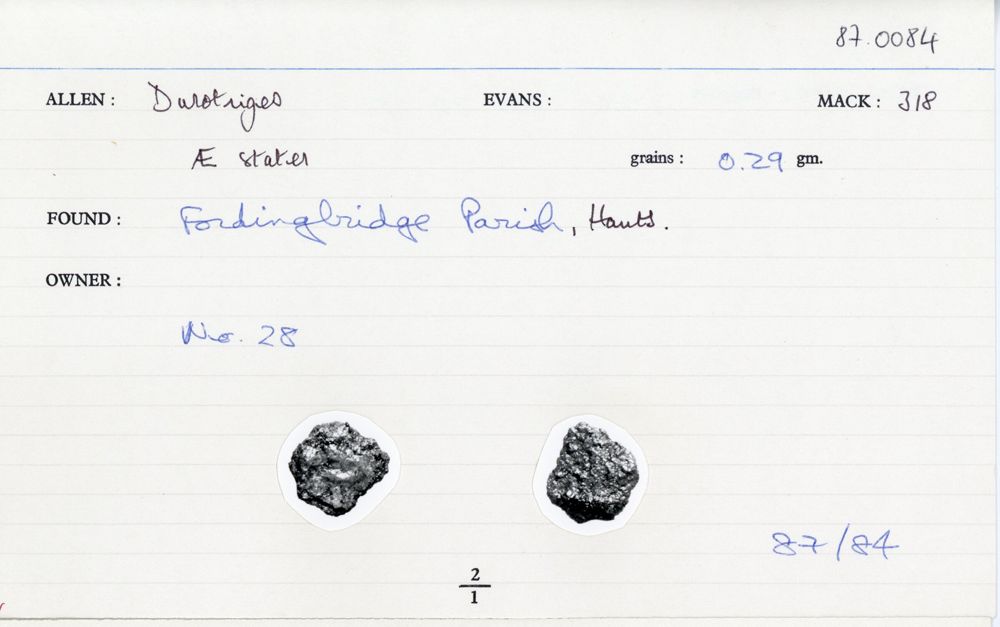 87.0084
ALLEN : Durotriges EVANS : MACK : 318
Æ stater grains : 0.29 gm.
FOUND : Fordingbridge Parish, Hants.
OWNER :
No. 28
87/84
2
1